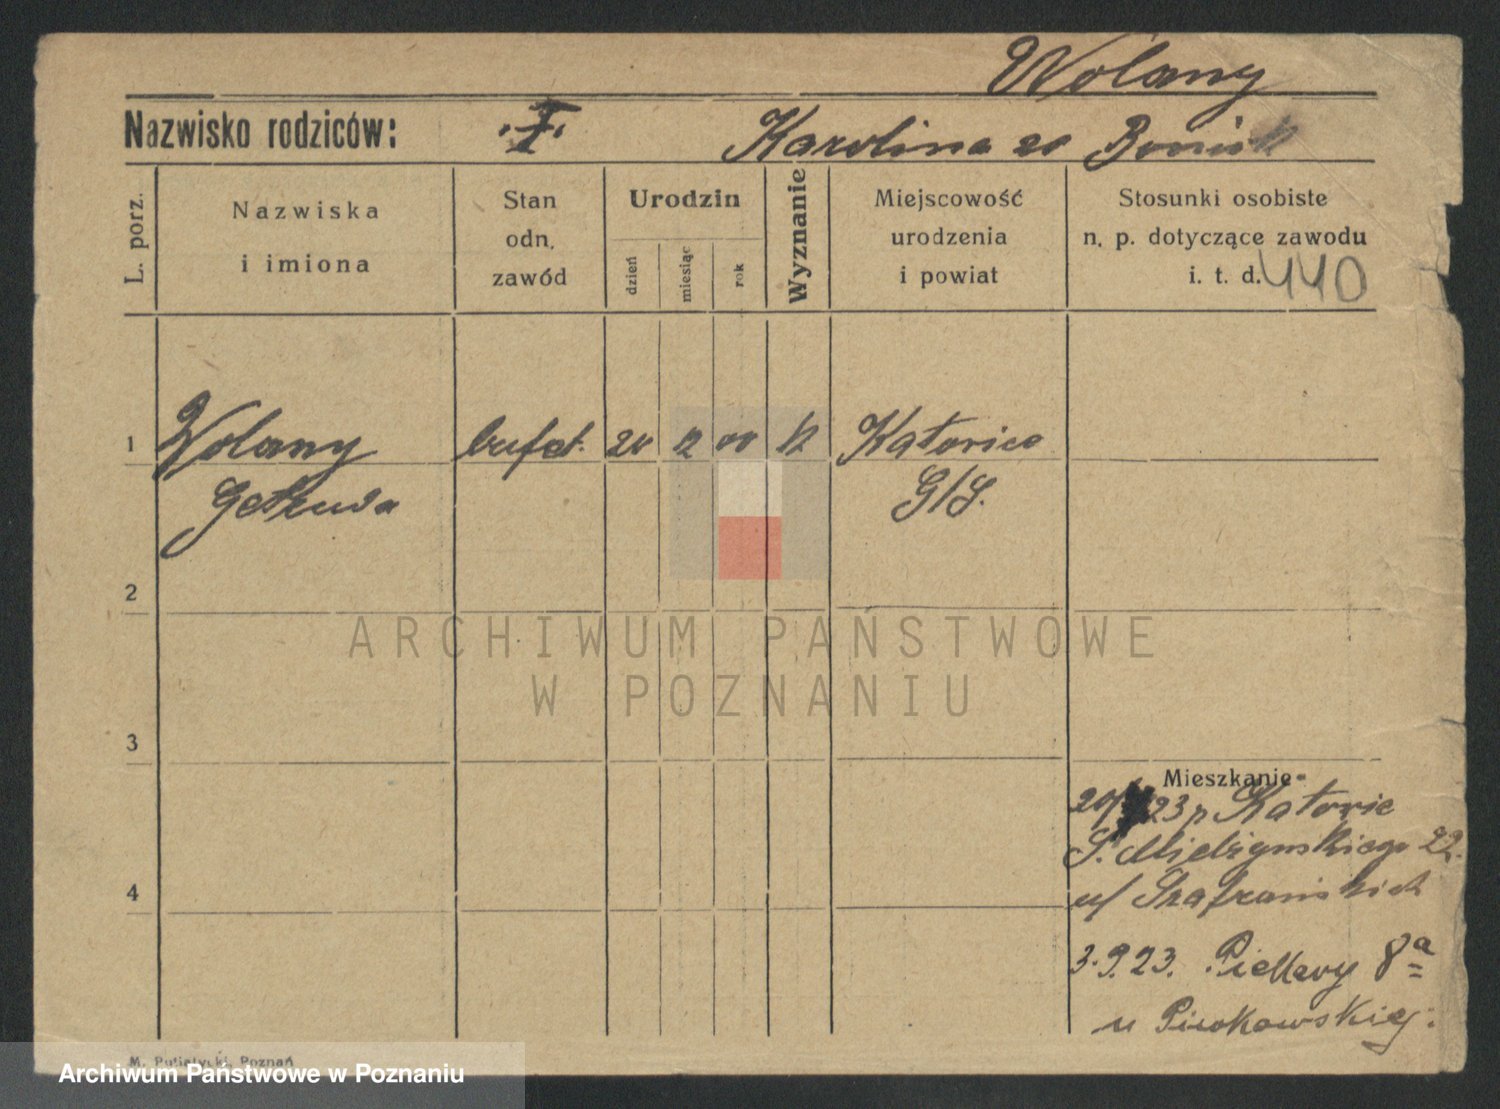 Wolany
Nazwisko rodziców: Karolina zd
L. porz.
Nazwiska
i imiona
Stan
odn.
zawód
Urodzin
dzień
miesiąc
rok
Wyznanie
Miejscowość
urodzenia
i powiat
Stosunki osobiste
n. p. dotyczące zawodu
i. t. d. 440
1 Wolany bufet. 12 00 Katowice
G/S.
2
3
4
Mieszkanie
23 Katowic
22.
u/
3.9.23. 8a
u
M. Putiatycki, Poznań
ARCHIWUM PAŃSTWOWE
W POZNANIU
Archiwum Państwowe w Poznaniu